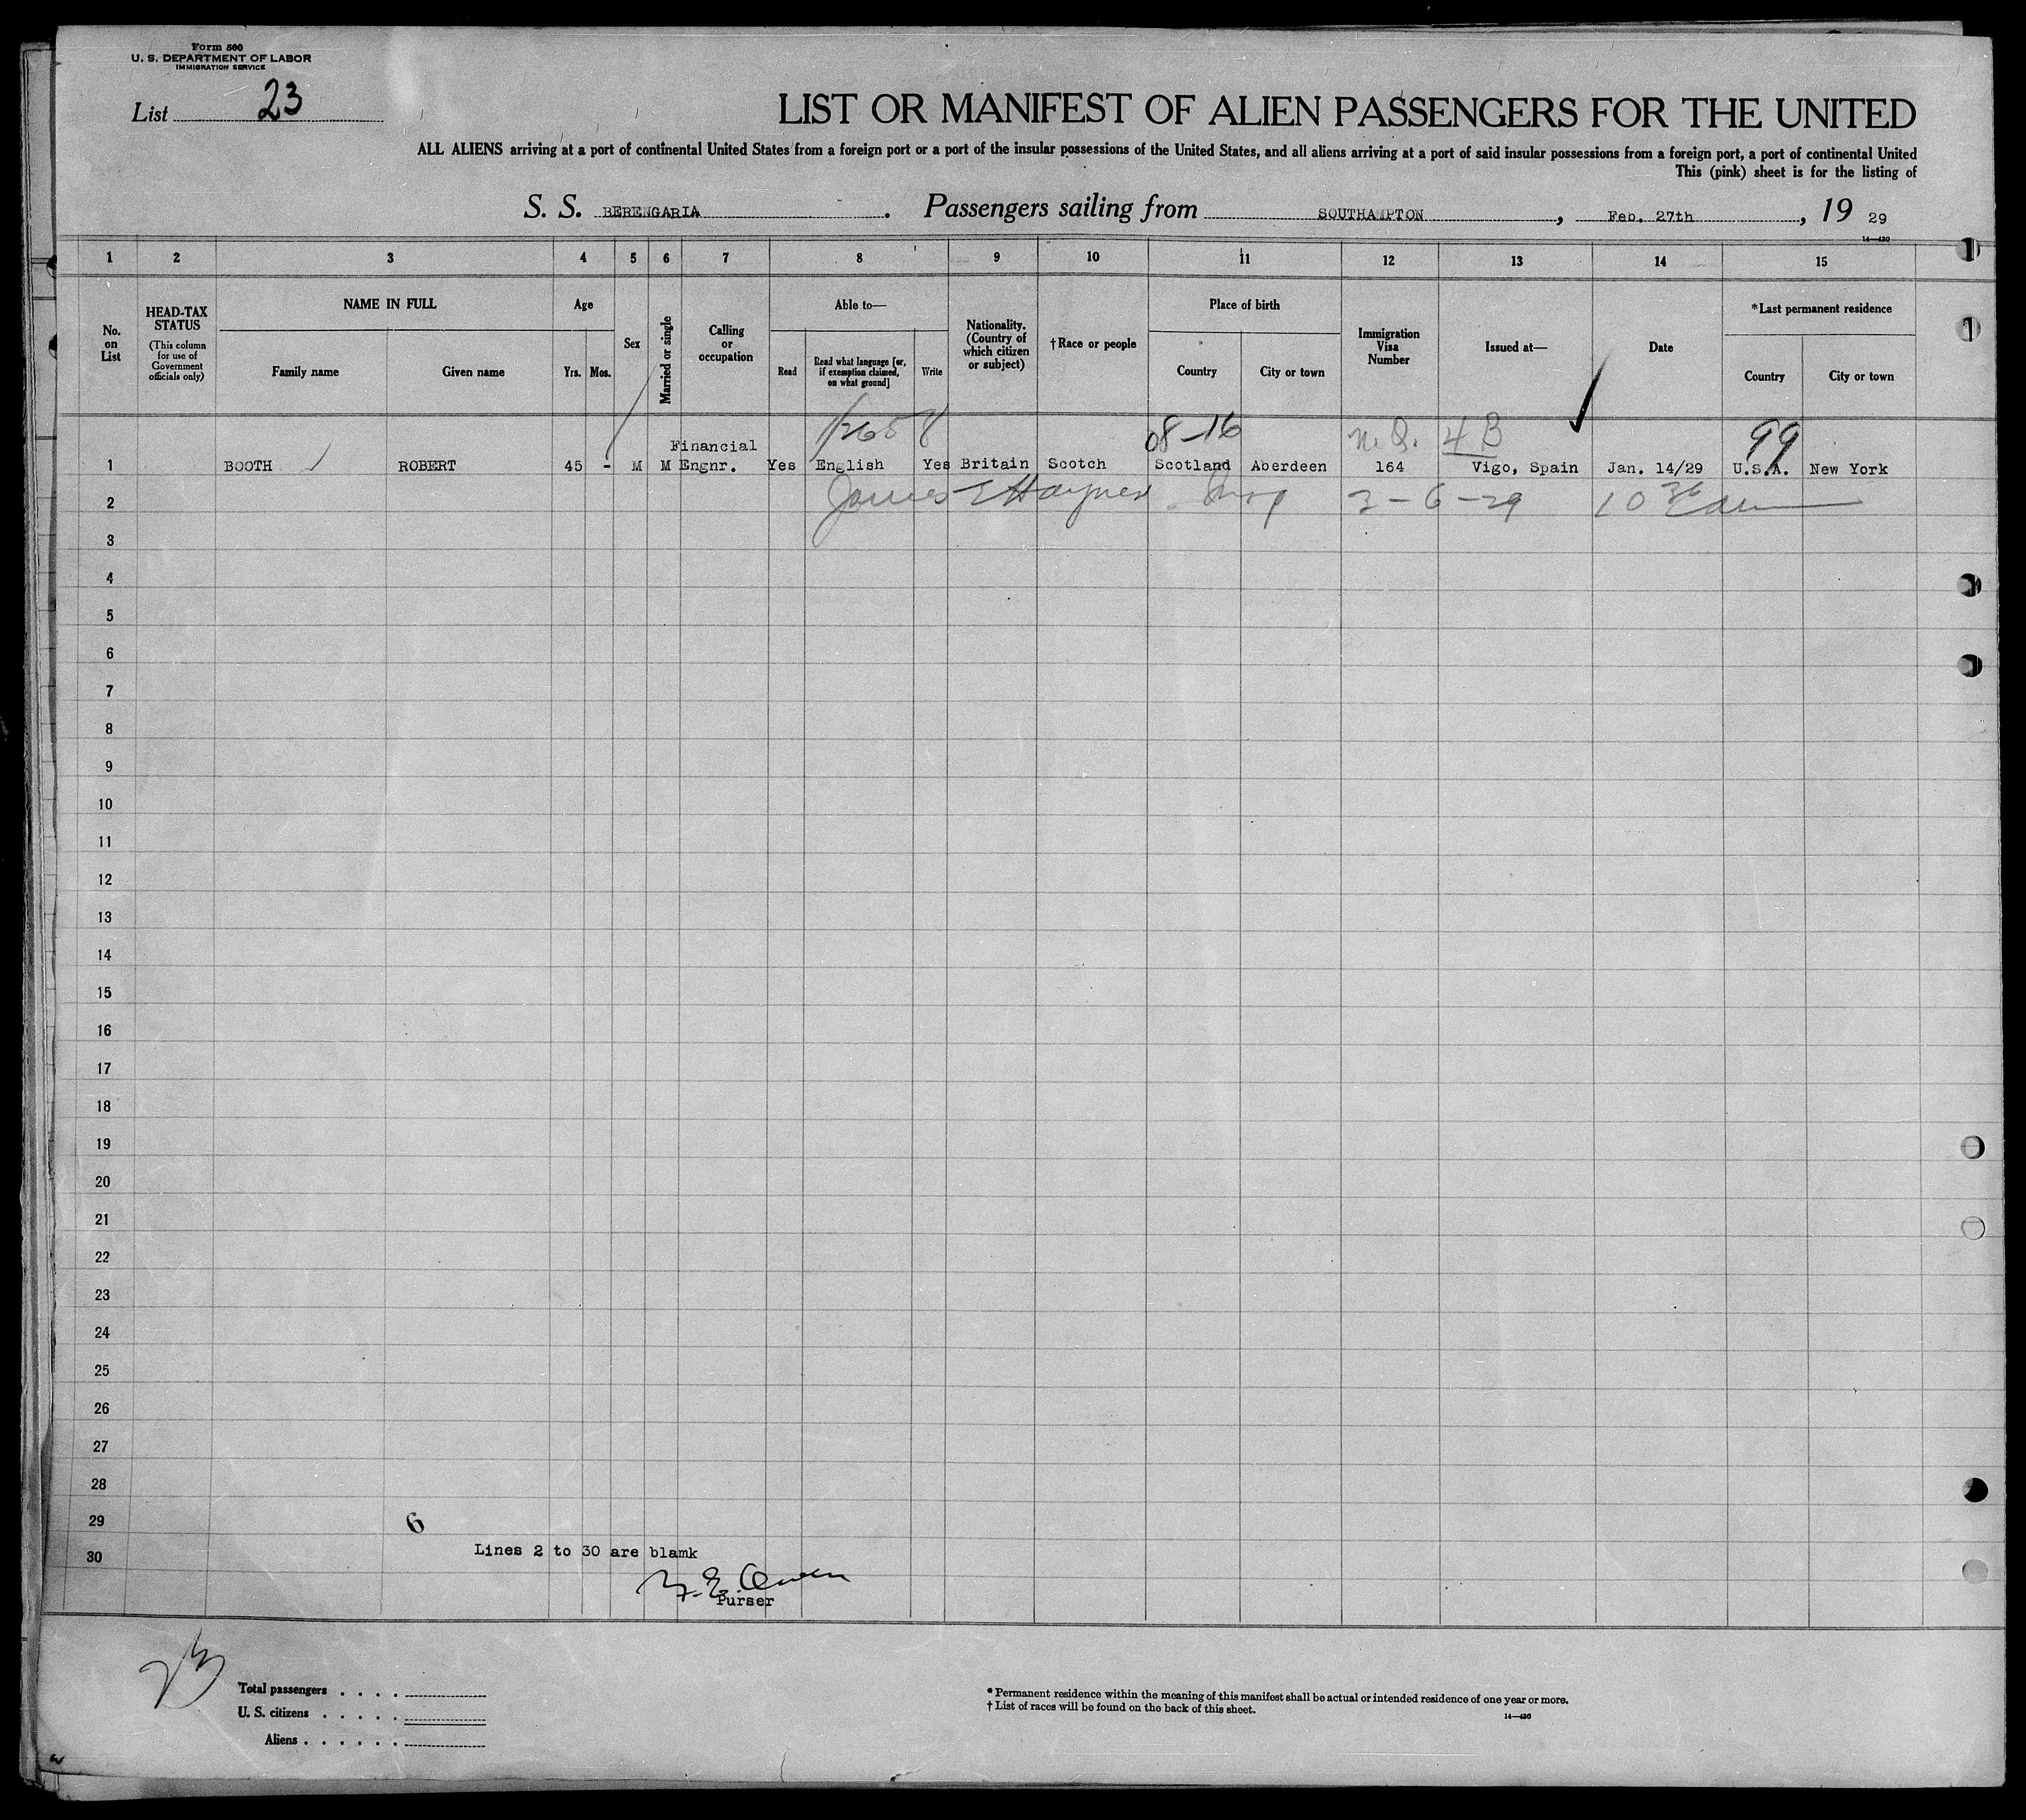 Form 500
U. S. DEPARTMENT OF LABOR
IMMIGRATION SERVICE
List 23
LIST OR MANIFEST OF ALIEN PASSENGERS FOR THE UNITED
ALL ALIENS arriving at a port of continental United States from a foreign port or a port of the insular possessions of the United States, and all aliens arriving at a port of said insular possessions from a foreign port, a port of continental United
This (pink) sheet is for the listing of
S. S. BERENGARIA. Passengers sailing from SOUTHAMPTON, Feb. 27th, 19 29
14—430
1 2 3 4 5 6 7 8 9 10 11 12 13 14 15
No. on List
HEAD-TAX STATUS
(This column for use of Government officials only)
NAME IN FULL
Family name Given name
Age
Yrs. Mos.
Sex
Married or single
Calling or occupation
Able to—
Read
Read what language [or, if exemption claimed, on what ground]
Write
Nationality. (Country of which citizen or subject)
†Race or people
Place of birth
Country City or town
Immigration Visa Number
Issued at—
Date
*Last permanent residence
Country City or town
08-16 4 B 99
1 BOOTH ROBERT 45 - M M Financial Engnr. Yes English Yes Britain Scotch Scotland Aberdeen 164 Vigo, Spain Jan. 14/29 U.S.A. New York
2 James E Haynes 3-6-29
3
4
5
6
7
8
9
10
11
12
13
14
15
16
17
18
19
20
21
22
23
24
25
26
27
28
29 6
30 Lines 2 to 30 are blamk
Owen
Purser
23
Total passengers . . . .
U. S. citizens . . . . .
Aliens . . . . . .
* Permanent residence within the meaning of this manifest shall be actual or intended residence of one year or more.
† List of races will be found on the back of this sheet.
14—430